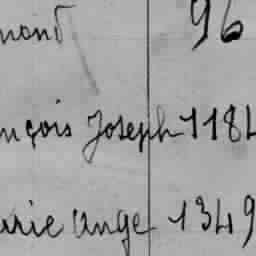 mond 96
nçois Joseph 1184
arie Ange 1349